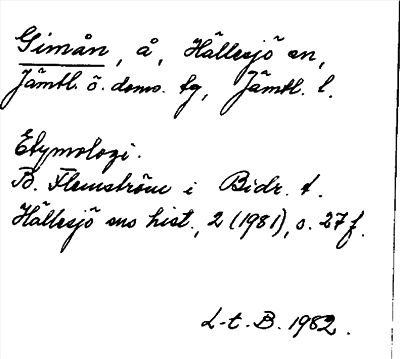 Gimån, å, Hällesjö sn,
Jämtl. ö. doms. tg, Jämtl. l.
Etymologi.
B. Flemström i Bidr. t.
Hällesjö sns hist., 2 (1981), s. 27 f.
L-t. B. 1982.